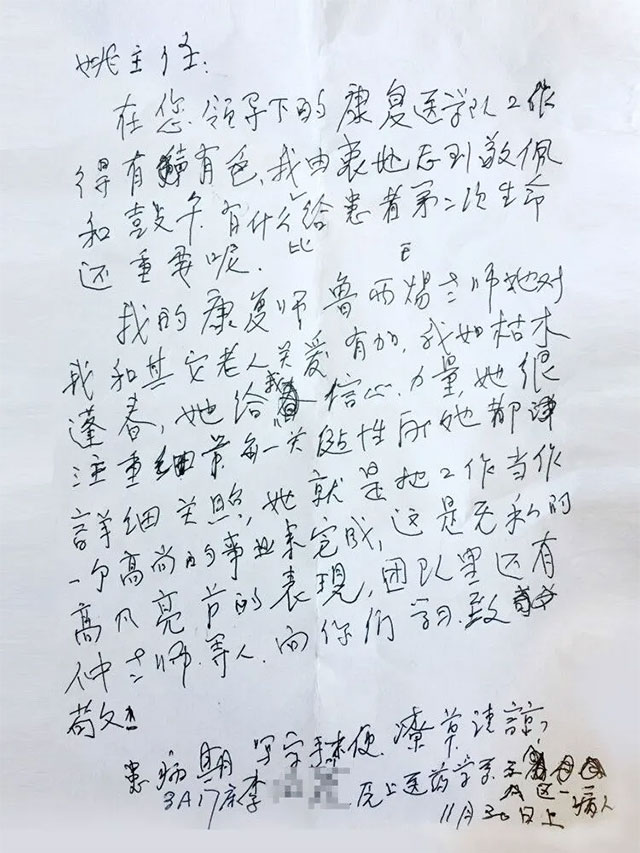 姚主任:
在您领导下的康复医学队工作
得有声有色,我由衷地感到敬佩
和鼓午.有什么比给患者第二次生命
还重要呢.
我的康复师鲁西炀老师她对
我和其它老人关爱有加,我如枯木
逢春,她给我信心.力量,她很
注重细节每一关键性所她都
詳细关照,她就是把工作当作
一个高尚的事业来完成,这是无私的
高风亮节的表現,团队里还有
仲老师.等人.向你们学习.致
敬!
患病期写字手不便.潦草请諒,
3A17床李 医药学系
11月30日上 病人